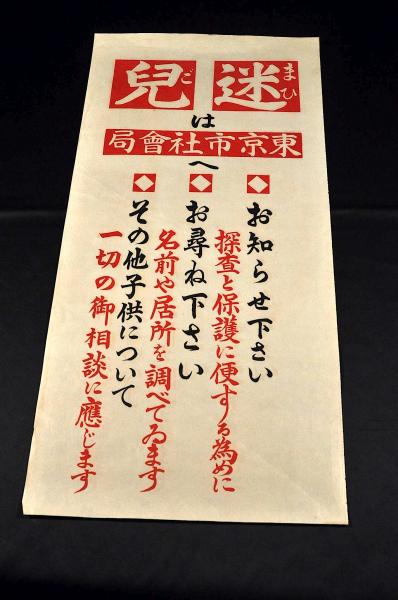 まひご
迷兒
は
東京市社會局
へ
お知らせ下さい
探査と保護に便する為めに
お尋ね下さい
名前や居所を調べてゐます
その他子供について
一切の御相談に應じます